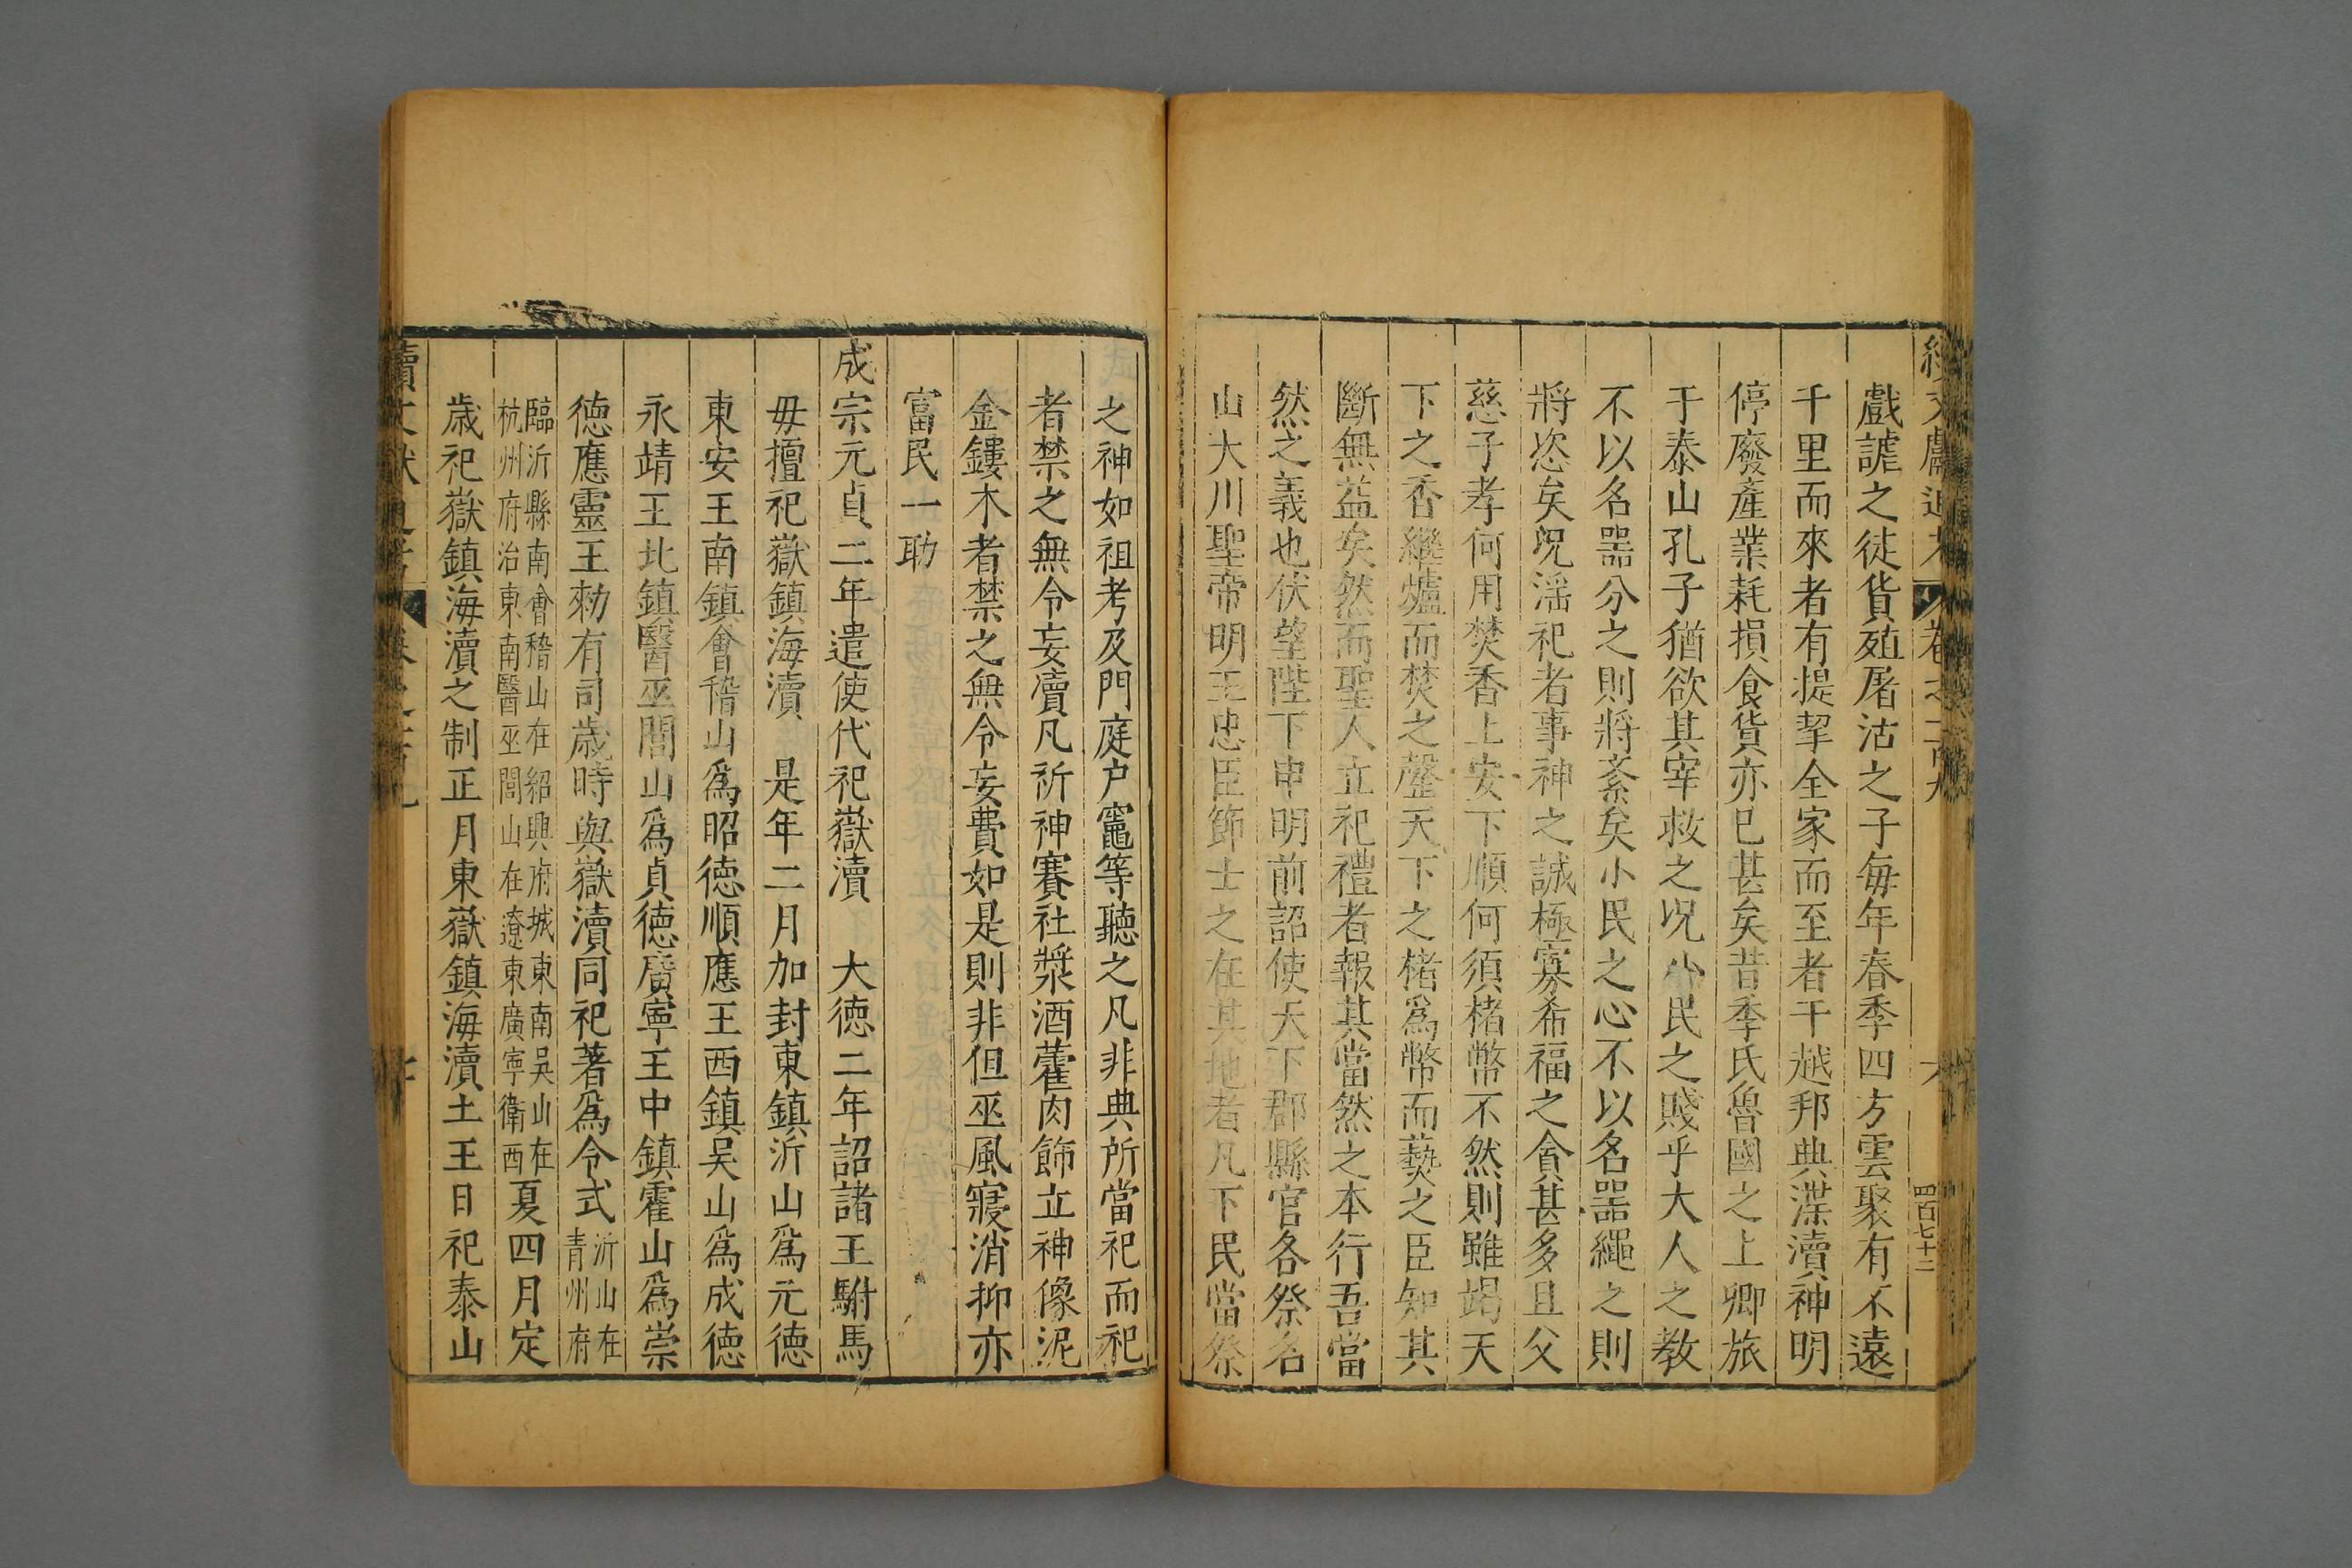 戲謔之徒貨殖屠沽之子每年春季四方雲聚有不遠
千里而來者有提挈全家而至者干越邦典渫瀆神明
停廢產業耗損食貨亦已甚矣昔季氏魯國之上卿旅
于泰山孔子猶欲其宰救之况小民之賤乎大人之教
不以名器分之則將紊矣小民之心不以名器繩之則
將恣矣况淫祀者事神之誠極寡希福之貪甚多且父
慈子孝何用焚香上安下順何須楮幣不然則雖竭天
下之香繼爐而焚之罄天下之楮爲幣而爇之臣知其
斷無益矣然而聖人立祀禮者報其當然之本行吾當
然之義也伏望陛下申明前詔使天下郡縣官各祭名
山大川聖帝明王忠臣節士之在其地者凡下民當祭
之神如祖考及門庭户竈等聽之凡非典所當祀而祀
者禁之無令妄瀆凡祈神賽社漿酒藿肉飾立神像泥
金鏤木者禁之無令妄費如是則非但巫風寢消抑亦
富民一助
成宗元貞二年遣使代祀嶽瀆 大德二年詔諸王駙馬
毋擅祀嶽鎮海瀆 是年二月加封東鎮沂山爲元德
東安王南鎮會稽山爲昭德順應王西鎮吴山爲成德
永靖王北鎮醫巫閭山爲貞德廣寧王中鎮霍山爲崇
德應靈王勑有司歲時與嶽瀆同祀著爲令式沂山在青州府
臨沂縣南會稽山在紹興府城東南吳山在杭州府治東南醫巫閭山在遼東廣寧衛西夏四月定
歲祀嶽鎮海瀆之制正月東嶽鎮海瀆土王日祀泰山